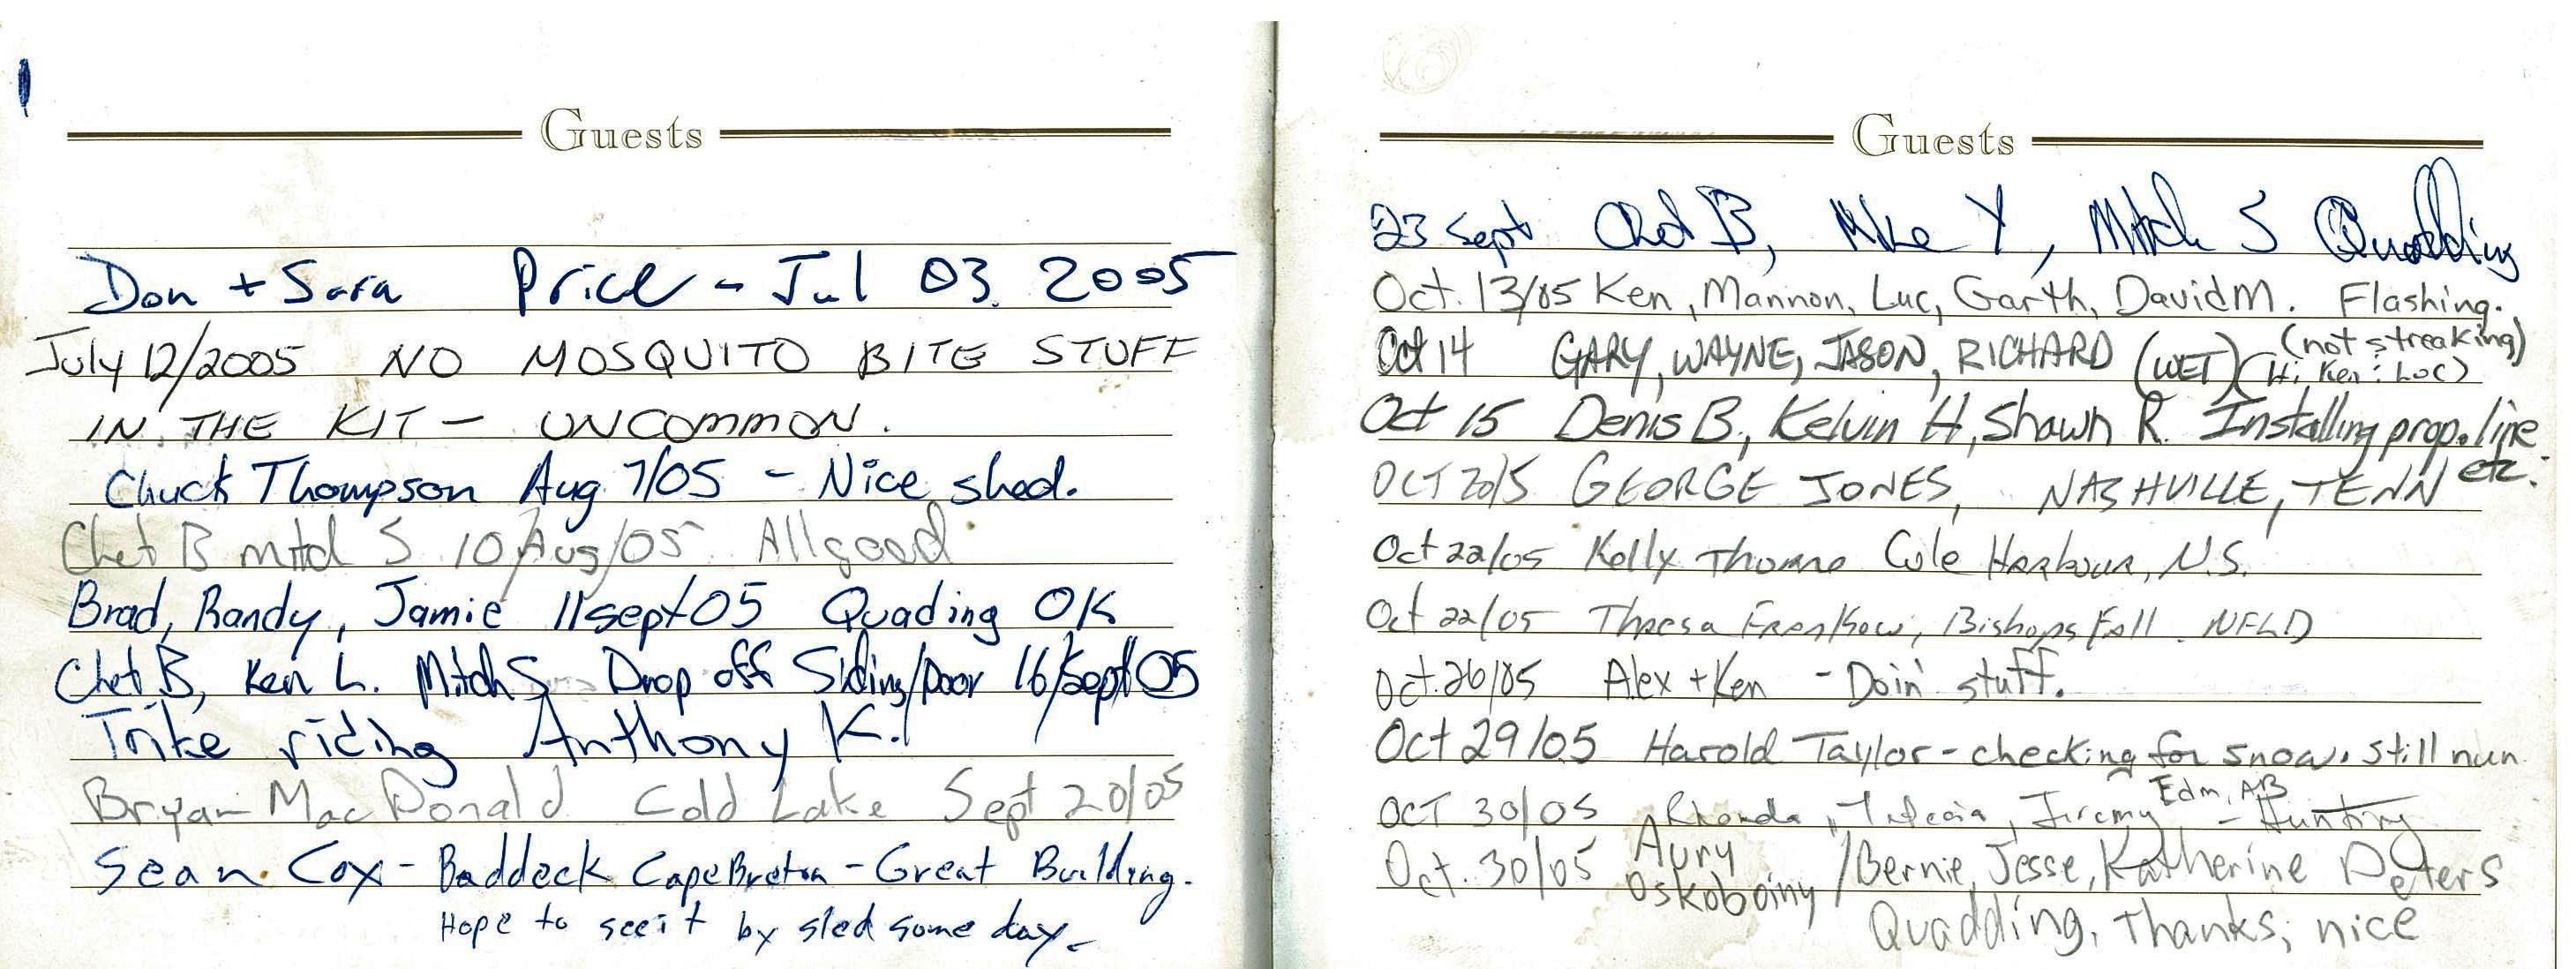 Guests
Don + Sara Price - Jul 03 2005
July 12/2005 NO MOSQUITO BITE STUFF
IN THE KIT - UNCOMMON.
Chuck Thompson Aug 7/05 - Nice shed.
Chet B mtch S 10/Aug/05 All good
Brad, Randy, Jamie 11 sept 05 Quading OK
Chet B, Ken L. Mitch S Drop off Siding/Door 16/Sept 05
Trike riding Anthony K.
Bryan MacDonald Cold Lake Sept 20/05
Sean Cox - Baddeck Cape Breton - Great Building.
Hope to see it by sled some day.
Guests
23 Sept B, Mike Y, Mitch S Quadding
Oct. 13/05 Ken, Mannon, Luc, Garth, David M. Flashing.
(not streaking)
Oct 14 GARY, WAYNE, JASON, RICHARD (WET) (Hi, Ken : Luc)
Oct 15 Denis B., Kelvin H, Shawn R. Installing prop. line
etc.
OCT 20/5 GEORGE JONES, NASHVILLE, TENN
Oct 22/05 Kelly Thorne Cole Harbour, N.S.
Oct 22/05 Bishops Fall. NFLD
Oct. 26/05 Alex + Ken - Doin' stuff.
Oct 29/05 Harold Taylor - checking for snow. still nun
Edm, AB
OCT 30/05 Rhonda, , Jeremy - Hunting
Oct. 30/05 Aury Oskoboiny / Bernie, Jesse, Katherine Peters
Quadding, Thanks, nice